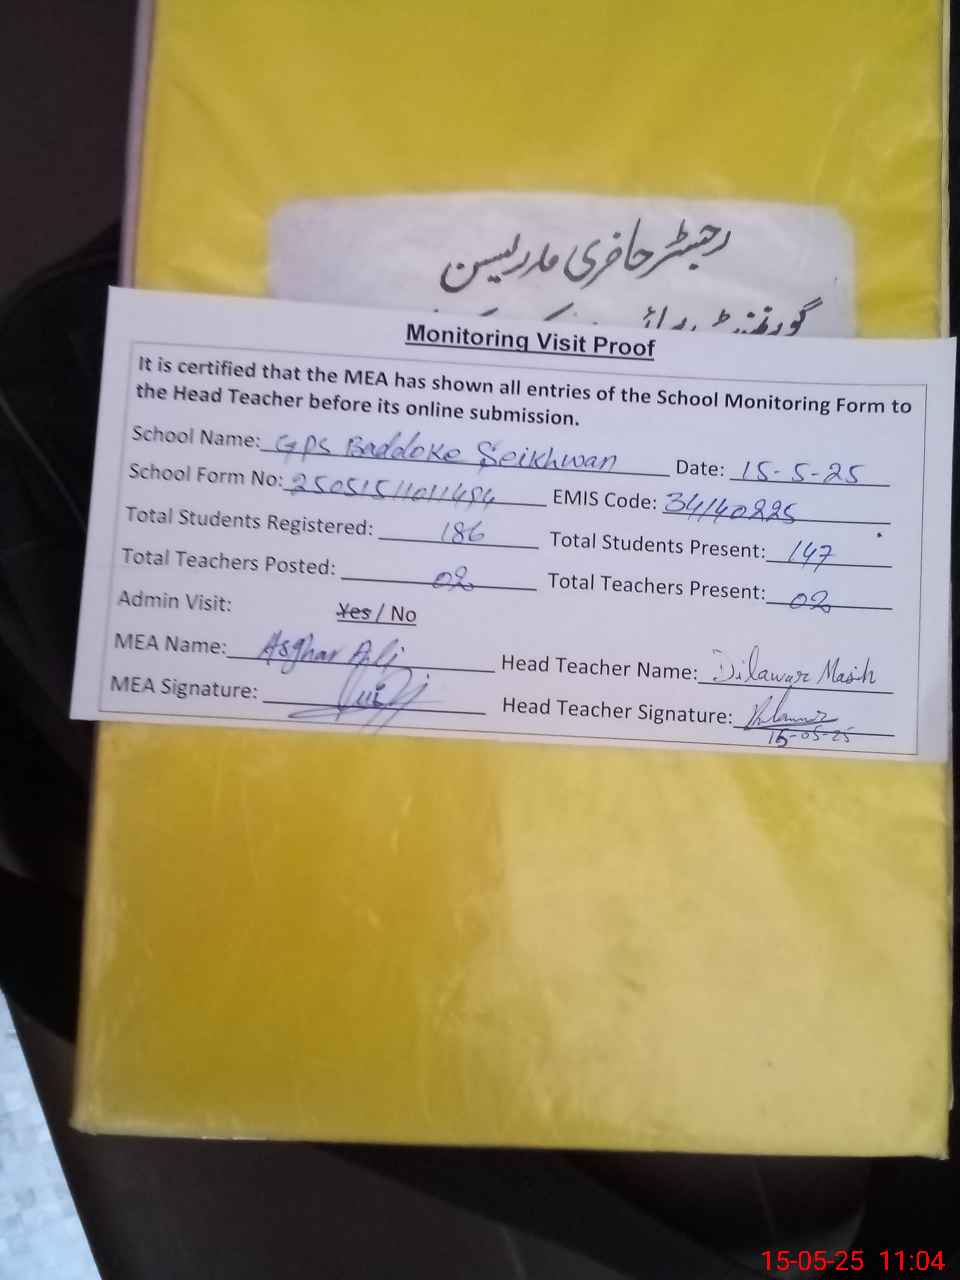 رجسٹر حاضری مدرسین
گورنمنٹ
Monitoring Visit Proof
It is certified that the MEA has shown all entries of the School Monitoring Form to
the Head Teacher before its online submission.
School Name: GPS Baddoke Seikhwan Date: 15-5-25
School Form No: 25051511011484 EMIS Code: 34140225
Total Students Registered: 186 Total Students Present: 147
Total Teachers Posted: 02 Total Teachers Present: 02
Admin Visit: Yes / No
MEA Name: Asghar Ali Head Teacher Name: Dilawar Masih
MEA Signature: Head Teacher Signature:
15-05-25
15-05-25 11:04